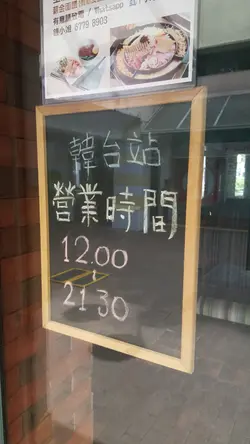 有意請致電 / Whatsapp
6779 8903
韓台站
營業時間
12.00
21.30